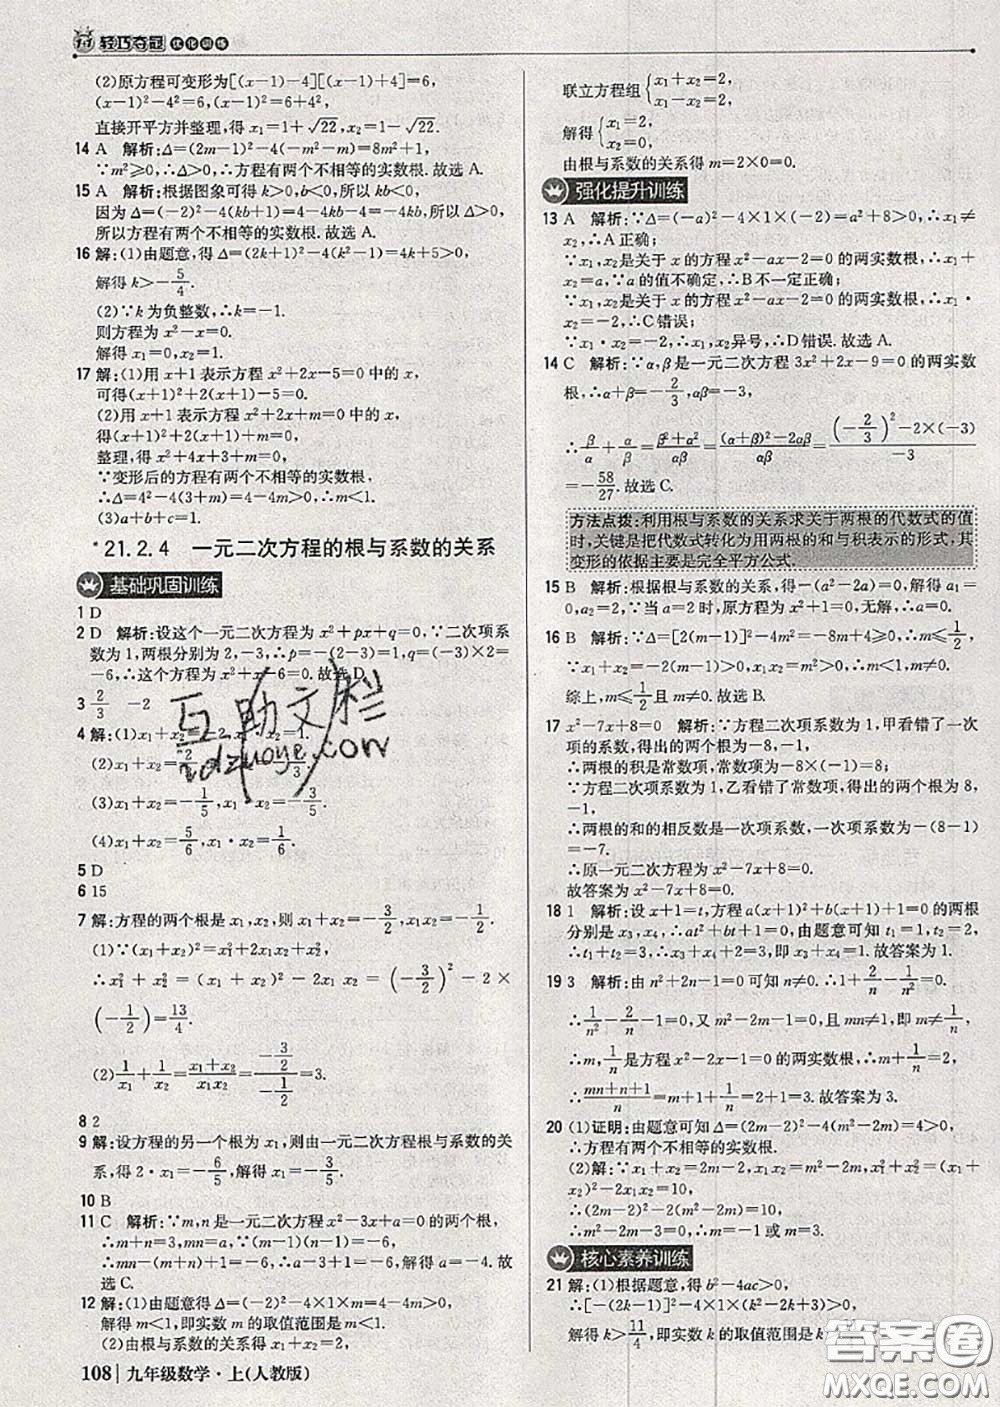 1+1 轻巧夺冠 优化训练
(2)原方程可变形为[(x-1)-4][(x-1)+4]=6,
(x-1)²-4²=6,(x-1)²=6+4²,
直接开平方并整理,得x₁=1+√22,x₂=1-√22.
14 A 解析:Δ=(2m-1)²-4(-m²-m)=8m²+1,
∵m²≥0,∴Δ>0,∴方程有两个不相等的实数根.故选A.
15 A 解析:根据图象可得k>0,b<0,所以kb<0,
因为Δ=(-2)²-4(kb+1)=4-4kb-4=-4kb,所以Δ>0,
所以方程有两个不相等的实数根.故选A.
16 解:(1)由题意,得Δ=(2k+1)²-4(k²-1)=4k+5>0,
解得k>-5/4.
(2)∵k为负整数,∴k=-1.
则方程为x²-x=0.
解得x₁=0,x₂=1.
17 解:(1)用x+1表示方程x²+2x-5=0中的x,
可得(x+1)²+2(x+1)-5=0.
(2)用x+1表示方程x²+2x+m=0中的x,
得(x+1)²+2(x+1)+m=0,
整理,得x²+4x+3+m=0.
∵变形后的方程有两个不相等的实数根,
∴Δ=4²-4(3+m)=4-4m>0,∴m<1.
(3)a+b+c=0.
*21.2.4 一元二次方程的根与系数的关系
基础巩固训练
1 D
2 D 解析:设这个一元二次方程为x²+px+q=0,∵二次项系
数为1,两根分别为2,-3,∴p=-(2-3)=1,q=(-3)×2=
-6,∴这个方程为x²+x-6=0.故选D.
3 2/3 -2
4 解:(1)x₁+x₂=-2,x₁·x₂=1.
(2)x₁+x₂=
(3)x₁+x₂=-1/5,x₁·x₂=-3/5.
(4)x₁+x₂=5/6,x₁·x₂=1/6.
5 D
6 15
7 解:方程的两个根是x₁,x₂,则x₁+x₂=-3/2,x₁x₂=-1/2.
(1)∵(x₁+x₂)²=x₁²+2x₁x₂+x₂²,
∴x₁²+x₂²=(x₁+x₂)²-2x₁x₂=(-3/2)²-2×
(-1/2)=13/4.
(2)1/x₁+1/x₂=(x₁+x₂)/(x₁x₂)=(-3/2)/(-1/2)=3.
8 2
9 解:设方程的另一个根为x₁,则由一元二次方程根与系数的关
系,得2·x₁=-6/5,解得x₁=-3/5.
10 B
11 C 解析:∵m,n是一元二次方程x²-3x+a=0的两个根,
∴m+n=3,mn=a.∵(m-1)(n-1)=-6,
∴mn-(m+n)+1=-6,即a-3+1=-6,解得a=-4.故
选C.
12 解:(1)由题意得Δ=(-2)²-4×1×m=4-4m>0,
解得m<1,即实数m的取值范围是m<1.
(2)由根与系数的关系得x₁+x₂=2,
108 九年级数学·上(人教版)
联立方程组{x₁+x₂=2,
x₁-x₂=2,
解得{x₁=2,
x₂=0.
由根与系数的关系得m=2×0=0.
强化提升训练
13 A 解析:∵Δ=(-a)²-4×1×(-2)=a²+8>0,∴x₁≠
x₂,∴A正确;
∵x₁,x₂是关于x的方程x²-ax-2=0的两实数根,∴x₁+
x₂=a,∵a的值不确定,∴B不一定正确;
∵x₁,x₂是关于x的方程x²-ax-2=0的两实数根,∴x₁·
x₂=-2,∴C错误;
∵x₁·x₂=-2,∴x₁,x₂异号,∴D错误.故选A.
14 C 解析:∵α,β是一元二次方程3x²+2x-9=0的两实数
根,∴α+β=-2/3,αβ=-3,
∴β/α+α/β=(β²+α²)/αβ=((α+β)²-2αβ)/αβ=((-2/3)²-2×(-3))/-3
=-58/27.故选C.
方法点拨:利用根与系数的关系求关于两根的代数式的值
时,关键是把代数式转化为用两根的和与积表示的形式,其
变形的依据主要是完全平方公式.
15 B 解析:根据根与系数的关系,得-(a²-2a)=0,解得a₁=
0,a₂=2,∵当a=2时,原方程为x²+1=0,无解,∴a=0.
16 B 解析:∵Δ=[2(m-1)]²-4m²=-8m+4≥0,∴m≤1/2,
∵x₁+x₂=-2(m-1)>0,x₁x₂=m²>0,∴m<1,m≠0.
综上,m≤1/2且m≠0.故选B.
17 x²-7x+8=0 解析:∵方程二次项系数为1,甲看错了一次
项的系数,得出的两个根为-8,-1,
∴两根的积是常数项,常数项为-8×(-1)=8.
∵方程二次项系数为1,乙看错了常数项,得出的两个根为
8,-1.
∴两根的和的相反数是一次项系数,一次项系数为-(8-1)
=-7.
∴原一元二次方程为x²-7x+8=0.
故答案为x²-7x+8=0.
18 1 解析:设x+1=t,方程a(x+1)²+b(x+1)+1=0的两根
分别是x₃,x₄,∴at²+bt+1=0,由题意可知t₁=1,t₂=2,
∴t₁+t₂=3,∴x₃+x₄+2=3,即x₃+x₄=1.故答案为1.
19 3 解析:由n²+2n-1=0可知n≠0.∴1+2/n-1/n²=0.
∴1/n²-2/n-1=0,又m²-2m-1=0,且mn≠1,即m≠1/n,
∴m,1/n是方程x²-2x-1=0的两个实数根,∴m+1/n=2,
∴(mn+n+1)/n=m+1+1/n=2+1=3.故答案为3.
20 (1)证明:由题意可知Δ=(2m-2)²-4(m²-2m)=4>0,
∴方程有两个不相等的实数根.
(2)解:∵x₁+x₂=2m-2,x₁x₂=m²-2m,x₁²+x₂²=(x₁+
x₂)²-2x₁x₂=10,∴(2m-2)²-2(m²-2m)=10,
∴m²-2m-3=0,∴m=-1或m=3.
核心素养训练
21 解:(1)根据题意,得b²-4ac>0,
∴[-(2k-1)]²-4×1×(k²-2k+3)>0,
解得k>11/4,即实数k的取值范围是k>11/4.
互助文档
zdzuoye.com
答案圈
MXQE.COM